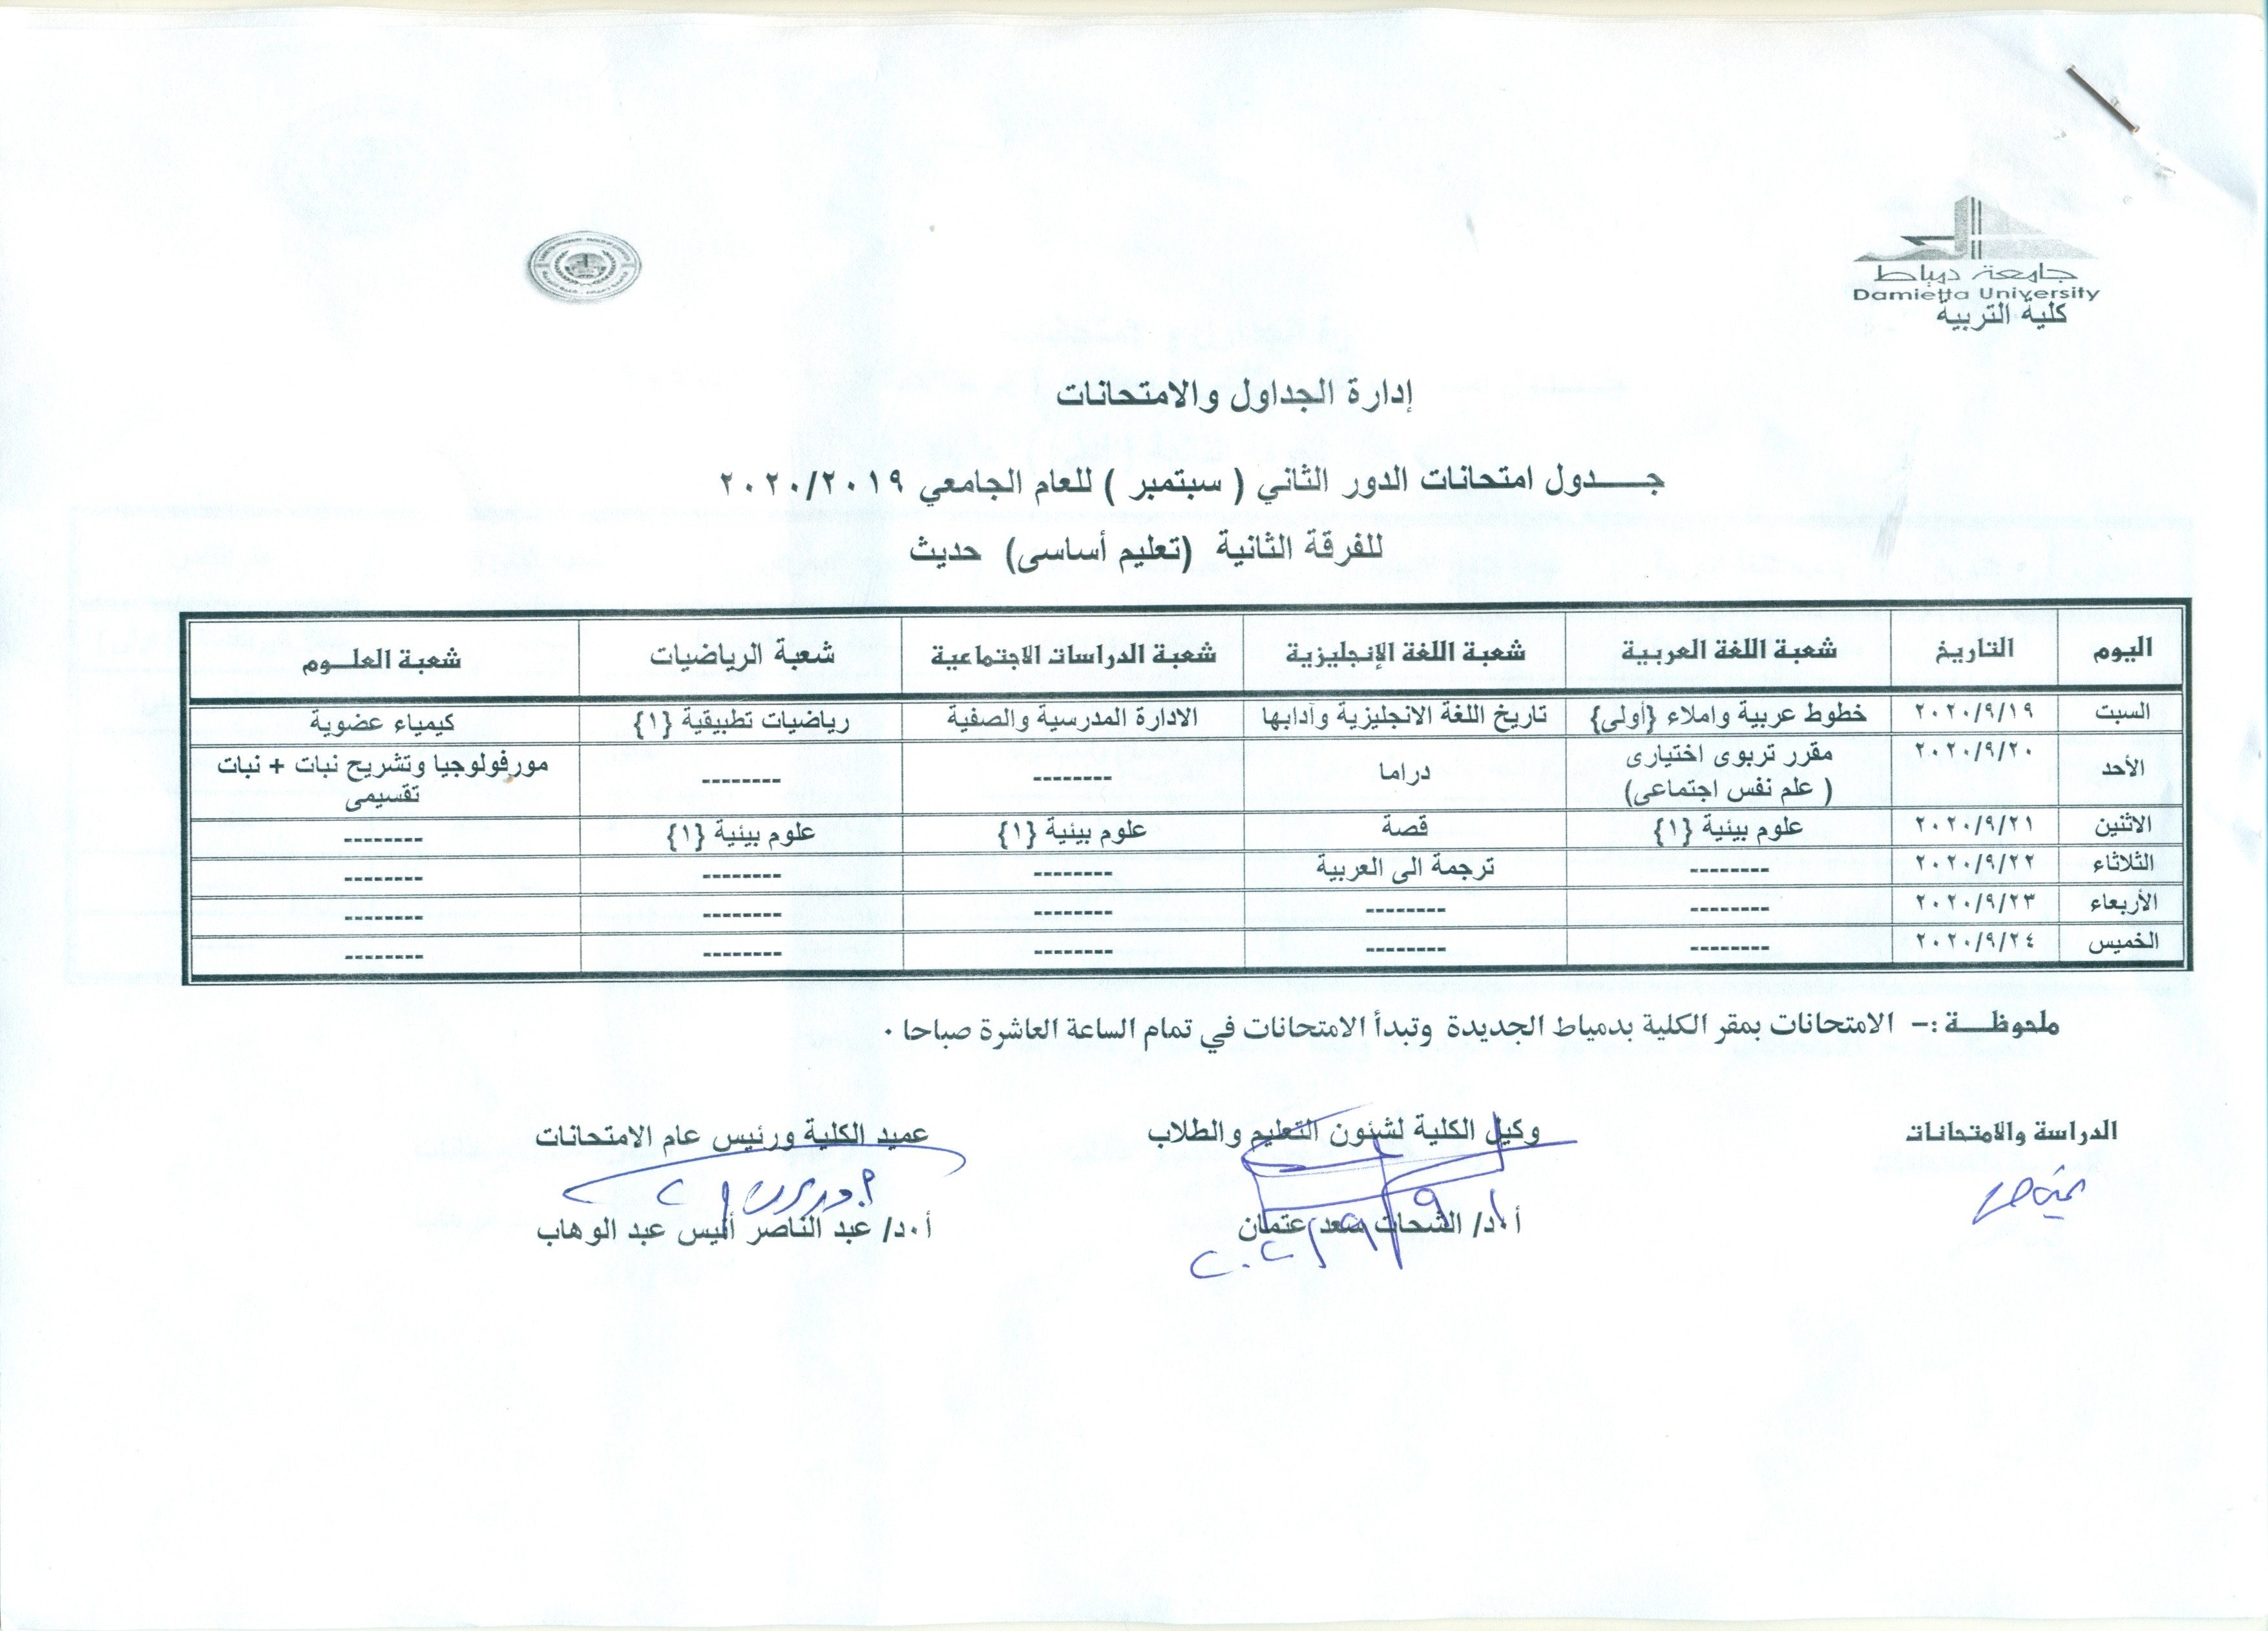 جامعة دمياط
Damietta University
كلية التربية
إدارة الجداول والامتحانات
جـــــدول امتحانات الدور الثاني ( سبتمبر ) للعام الجامعي ٢٠٢٠/٢٠١٩
للفرقة الثانية (تعليم أساسى) حديث
اليوم التاريخ شعبة اللغة العربية شعبة اللغة الإنجليزية شعبة الدراسات الاجتماعية شعبة الرياضيات شعبة العلـــوم
السبت ٢٠٢٠/٩/١٩ خطوط عربية واملاء {أولى} تاريخ اللغة الانجليزية وآدابها الادارة المدرسية والصفية رياضيات تطبيقية {١} كيمياء عضوية
الأحد ٢٠٢٠/٩/٢٠ مقرر تربوى اختيارى ( علم نفس اجتماعى) دراما -------- -------- مورفولوجيا وتشريح نبات + نبات تقسيمى
الاثنين ٢٠٢٠/٩/٢١ علوم بيئية {١} قصة علوم بيئية {١} علوم بيئية {١} --------
الثلاثاء ٢٠٢٠/٩/٢٢ -------- ترجمة الى العربية -------- -------- --------
الأربعاء ٢٠٢٠/٩/٢٣ -------- -------- -------- -------- --------
الخميس ٢٠٢٠/٩/٢٤ -------- -------- -------- -------- --------
ملحوظـــة :– الامتحانات بمقر الكلية بدمياط الجديدة وتبدأ الامتحانات في تمام الساعة العاشرة صباحا ٠
الدراسة والامتحانات وكيل الكلية لشئون التعليم والطلاب عميد الكلية ورئيس عام الامتحانات
أ٠د/ الشحات سعد عتمان أ٠د/ عبد الناصر أنيس عبد الوهاب